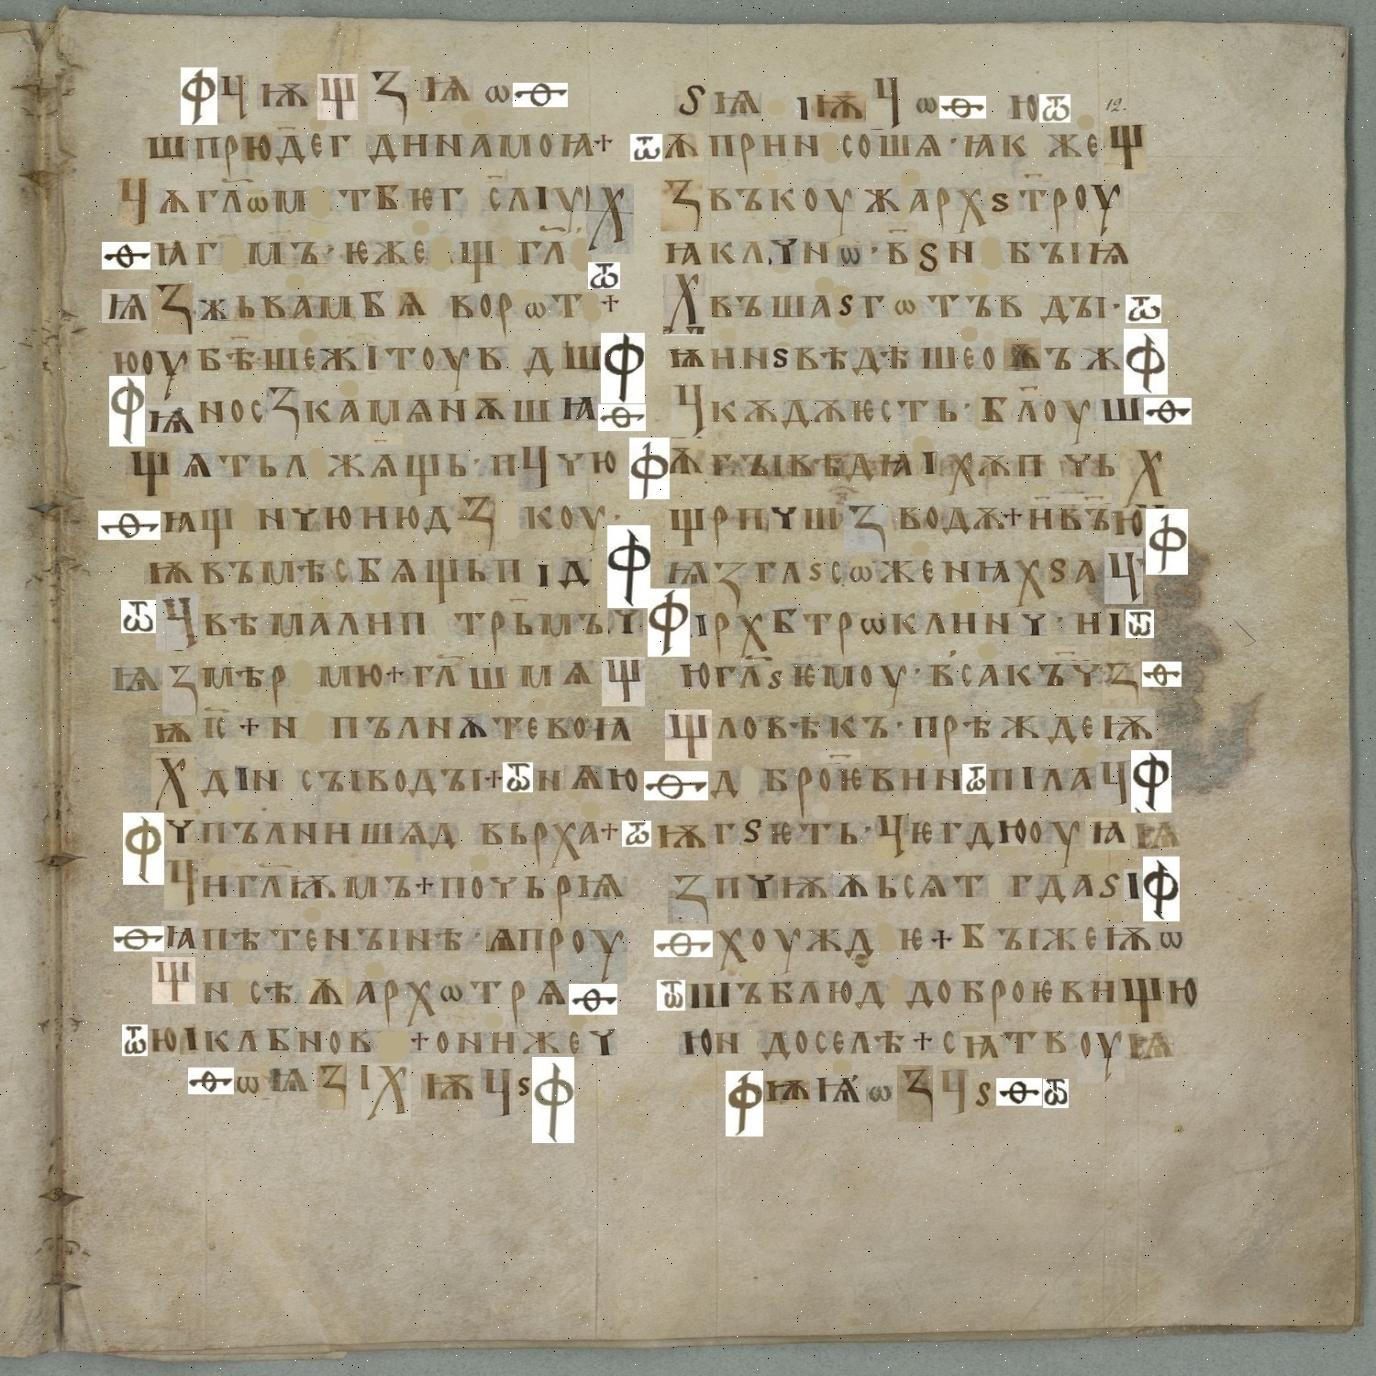 фчѭѱꙁѩѡѳ
шпрюдег динамоꙗ+
чѧглѡм твег слⲓѵх
ѳꙗг мъ·ѥже щ гл
ѩꙁжьвамбѧ ворѡт ѿ+
юоувѣшежітоув дшф
фѭносꙁкамѧнѫшꙗѳ
ѱѧтьл жѧщь·пчѵю
ѳꙗщ нѵюнюдꙁ коу·
ѭвъмѣсбѧщьпідф
ѿчвѣмалип трьмъѵ
ѩꙁмѣр мю+глшмѧѱ
ѭіс+н пълнѧтевоꙗ
хдін съіводъі+ѿнѫю
фѵпълнишѧд вьрха+
чиглѭмъ+поѵьрѩ
ѳꙗпѣтенъінѣ·ѧпроу
ѱн сѣѫархѡтрѧѳ
ѿюіклбнов +онижеѵ
ѳѡѩꙁіхѭчѕф
ѕѩ іѭчѡѳ юѿ 12.
ѿѫприн сошѧ·ꙗк жеѱ
ꙁвъкоужархѕтроу
ꙗклѵнѡ·вѕн бъіѩ
хвъшаѕгѡтъв дъі·ѿ
ѭинѕвѣдѣшеоѫъжф
чкѫдѫѥсть·блоушѳ
фѫгъівѣдꙗіхѫп ѵьх
щрпѵшꙁ водѫ+ивъюф
ѩꙁглѕсѡженꙗхѕач
фірхбтрѡклинѵ·ніѿ
юглѕѥмоу·всакъѵꙁѳ
ѱловѣкъ·прѣждеіѭ
ѳд броѥвинѿпілачф
ѿѭгѕѥть·чегдюоуꙗѩ
ꙁпѵѭѫьсѧт гдаѕіф
ѳхоужд ѥ+бъіжеіѭѡ
ѿшъблюд доброѥвиѱю
юн доселѣ+сꙗтвоуѩ
фѭѩѡꙁчѕѳѿ